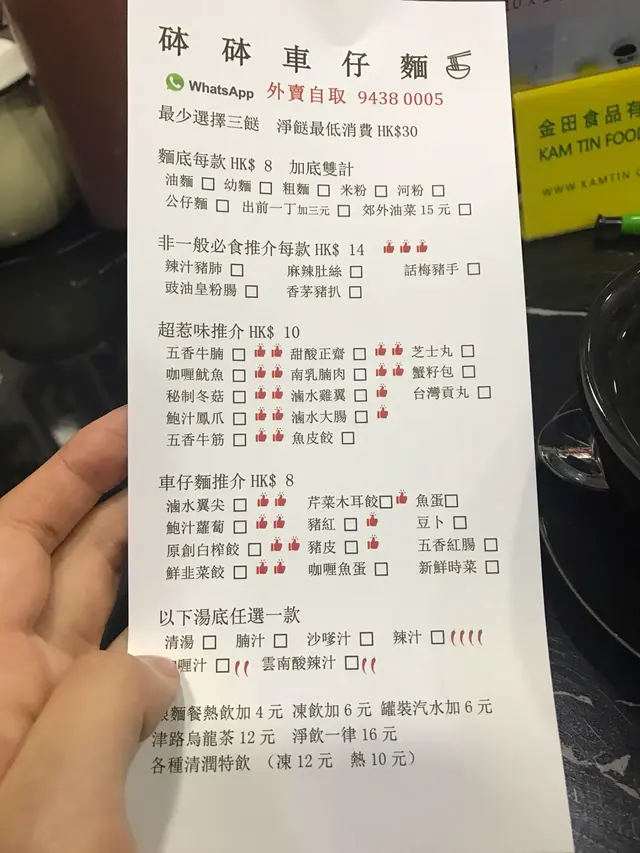 砵砵車仔麵
WhatsApp 外賣自取 9438 0005
最少選擇三餸 淨餸最低消費 HK$30
麵底每款 HK$ 8 加底雙計
油麵 □ 幼麵 □ 粗麵 □ 米粉 □ 河粉 □
公仔麵 □ 出前一丁加三元 □ 郊外油菜 15 元 □
非一般必食推介每款 HK$ 14
辣汁豬肺 □ 麻辣肚絲 □ 話梅豬手 □
豉油皇粉腸 □ 香茅豬扒 □
超惹味推介 HK$ 10
五香牛腩 □ 甜酸正齋 □ 芝士丸 □
咖喱魷魚 □ 南乳腩肉 □ 蟹籽包 □
秘制冬菇 □ 滷水雞翼 □ 台灣貢丸 □
鮑汁鳳爪 □ 滷水大腸 □
五香牛筋 □ 魚皮餃 □
車仔麵推介 HK$ 8
滷水翼尖 □ 芹菜木耳餃□ 魚蛋□
鮑汁蘿蔔 □ 豬紅 □ 豆卜 □
原創白榨餃 □ 豬皮 □ 五香紅腸 □
鮮韭菜餃 □ 咖喱魚蛋 □ 新鮮時菜 □
以下湯底任選一款
清湯 □ 腩汁 □ 沙嗲汁 □ 辣汁 □
喱汁 □ 雲南酸辣汁 □
麵餐熱飲加 4 元 凍飲加 6 元 罐裝汽水加 6 元
津路烏龍茶 12 元 淨飲一律 16 元
各種清潤特飲 （凍 12 元 熱 10 元）
金田食品有
KAM TIN FOOD
WWW.KAMTIN.